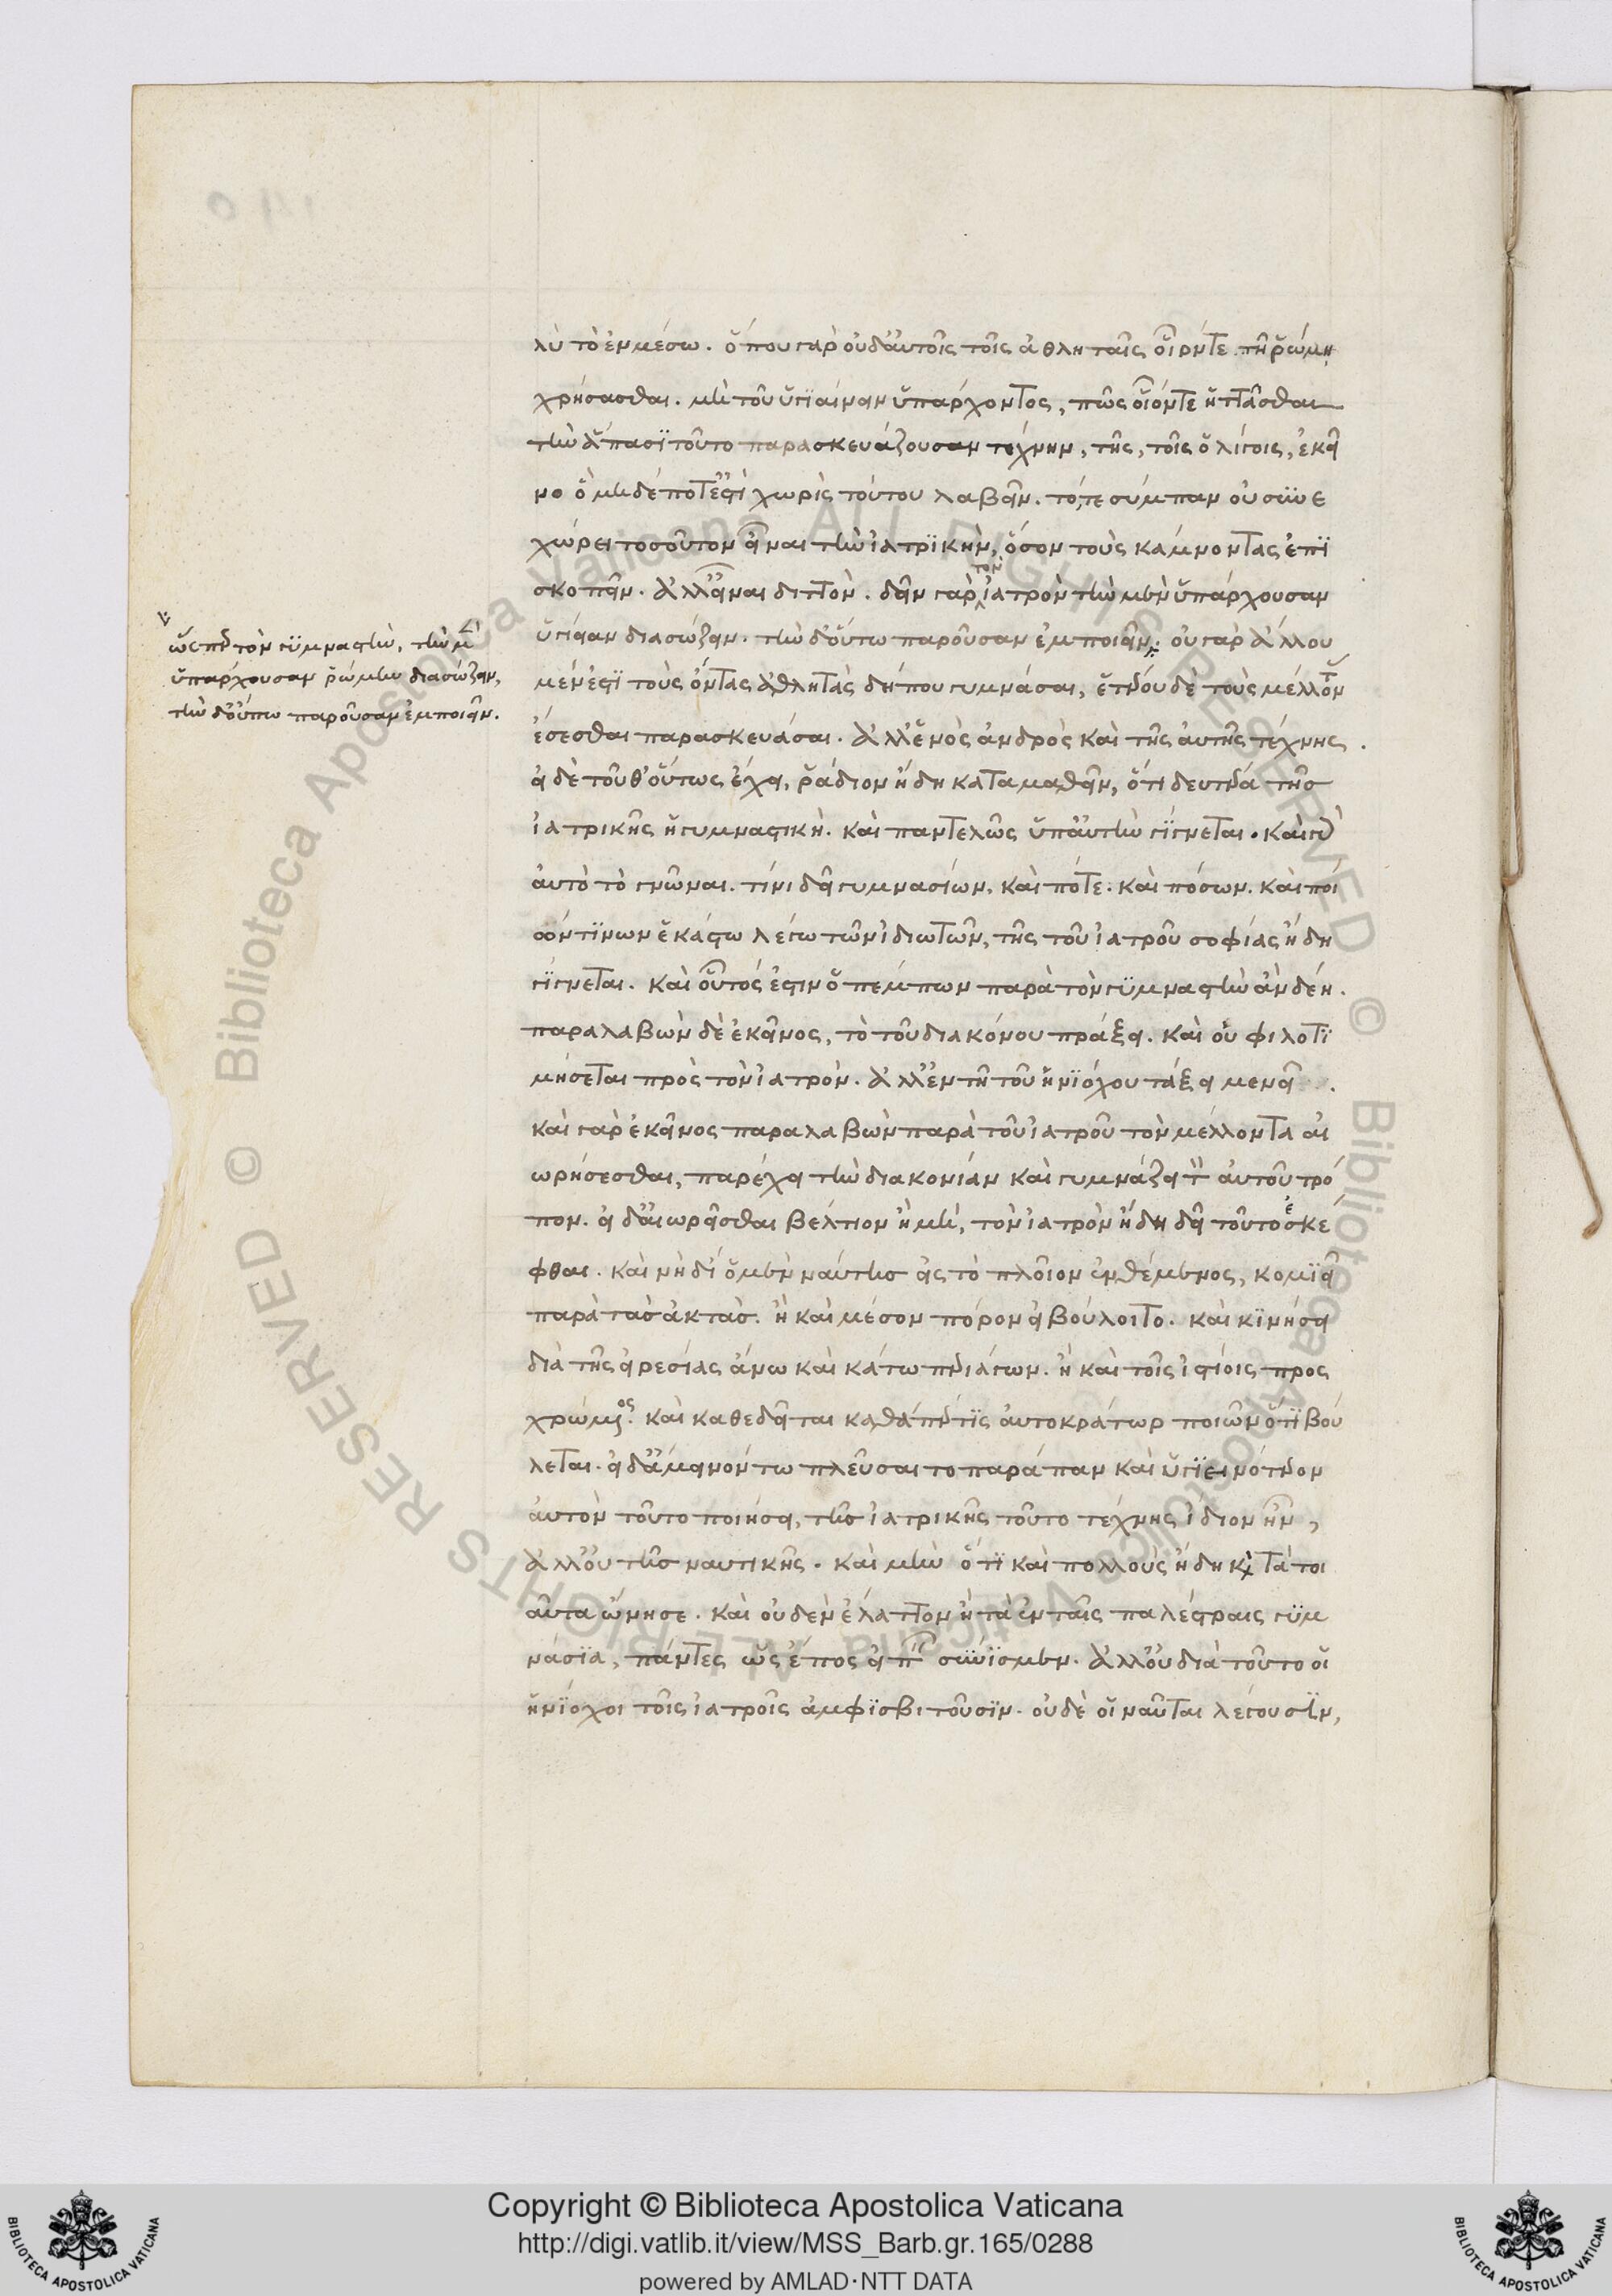 λὺ τὸ ἐν μέσω. ὅπου γὰρ οὐδ' αὐτοῖς τοῖς ἀθληταῖς οἷόντε τῆ ῥώμη
χρήσασθαι. μὴ τοῦ ὑγιαίνειν ὑπάρχοντος, πῶς οἷόντε ἡττᾶσθαι
τὴν ἅπασι τοῦτο παρασκευάζουσαν τέχνην, τῆς, τοῖς ὀλίγοις, ἐκεῖ
νο ὃ μηδέποτ' ἐστὶ χωρὶς τούτου λαβεῖν. τό,τε σύμπαν οὐ συνε
χώρει τοσοῦτον εἶναι τὴν ἰατρικὴν, ὅσον τοὺς κάμνοντας ἐπι
σκοπεῖν. ἀλλ' εἶναι διττόν. δεῖν γὰρ τὸν ἰατρὸν τὴν μὲν ὑπάρχουσαν
ὑγίειαν διασώζειν. τὴν δ' οὔπω παροῦσαν ἐμποιεῖν. οὐ γὰρ ἄλλου
μέν ἐστι τοὺς ὄντας ἀθλητὰς δήπου γυμνάσαι, ἑτέρου δὲ τοὺς μέλλοντας
ἔσεσθαι παρασκευάσαι. ἀλλ' ἑνὸς ἀνδρὸς καὶ τῆς αὐτῆς τέχνης.
εἰ δὲ τοῦθ' οὕτως ἔχει, ῥάδιον ἤδη καταμαθεῖν, ὅτι δευτέρα τῆς
ἰατρικῆς ἡ γυμναστική. καὶ παντελῶς ὑπ' αὐτὴν γίγνεται. καὶ γὰρ
αὐτὸ τὸ γνῶναι. τίνι δεῖ γυμνασίων. καὶ πότε. καὶ πόσων. καὶ ποί
ων τινων ἑκάστω λέγω τῶν ἰδιωτῶν, τῆς τοῦ ἰατροῦ σοφίας ἤδη
γίγνεται. καὶ οὗτός ἐστιν ὁ πέμπων παρὰ τὸν γυμναστὴν ἂν δέη.
παραλαβὼν δὲ ἐκεῖνος, τὸ τοῦ διακόνου πράξει. καὶ οὐ φιλοτι
μήσεται πρὸς τὸν ἰατρόν. ἀλλ' ἐν τῆ τοῦ ἡνιόχου τάξει μενεῖ.
καὶ γὰρ ἐκεῖνος παραλαβὼν παρὰ τοῦ ἰατροῦ τὸν μέλλοντα αἰ
ωρήσεσθαι, παρέχει τὴν διακονίαν καὶ γυμνάζει τὸν αὐτοῦ τρό
πον. εἰ δ' αἰωρεῖσθαι βέλτιον ἢ μὴ, τὸν ἰατρὸν ἤδη δεῖ τοῦτο ἐσκέ
φθαι. καὶ νὴ δί' ὁ μὲν ναύτης εἰς τὸ πλοῖον ἐνθέμενος, κομιεῖ
παρὰ τὰς ἀκτάς. ἢ καὶ μέσον πόρον εἰ βούλοιτο. καὶ κινήσει
διὰ τῆς εἰρεσίας ἄνω καὶ κάτω περιάγων. ἢ καὶ τοῖς ἱστίοις προς
χρώμενος. καὶ καθεδεῖται καθάπέρ τις αὐτοκράτωρ ποιῶν ὅτι βού
λεται. εἰ δ' ἄμεινόν τω πλεῦσαι το παράπαν καὶ ὑγιεινότερον
αὐτὸν τοῦτο ποιήσει, τῆς ἰατρικῆς τοῦτο τέχνης ἴδιον ἦν,
ἀλλ' οὐ τῆς ναυτικῆς. καὶ μὴν ὅτι καὶ πολλοὺς ἤδη κατὰ τοι
αῦτα ὤνησε. καὶ οὐδὲν ἔλαττον ἢ τὰ ἐν ταῖς παλέστραις γυμ
νάσια, πάντες ὡς ἔπος εἰπεῖν σύνισμεν. ἀλλ' οὐ διὰ τοῦτο οἱ
ἡνίοχοι τοῖς ἰατροῖς ἀμφισβιτοῦσιν. οὐδὲ οἱ ναῦται λέγουσιν,
ὥσπερ τὸν γυμναστὴν, τὴν μὲν
ὑπάρχουσαν ῥώμην διασώζειν,
τὴν δ' οὔπω παροῦσαν ἐμποιεῖν.
Copyright © Biblioteca Apostolica Vaticana
http://digi.vatlib.it/view/MSS_Barb.gr.165/0288
powered by AMLAD·NTT DATA
BIBLIOTECA APOSTOLICA VATICANA
BIBLIOTECA APOSTOLICA VATICANA
© Biblioteca Apostolica Vaticana ALL RIGHTS RESERVED © Biblioteca Apostolica Vaticana ALL RIGHTS RESERVED